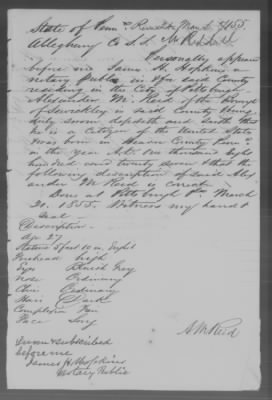 State of Penn
Allegheny Co S.S.
Personally appeared
before me James H. Hopkins
notary Public in & for said County
residing in the City of Pittsburgh
Alexander M. Reid of the
of Sewickley in said County being
duly sworn deposeth and saith that
he is a Citizen of the United States
was born in Beaver County Penn
in the year A.D. one thousand eight
hundred and twenty seven & that the
following description of said Alex
ander M Reid is correct
Done at Pittsburgh the March
21. 1855. Witness my hand &
seal
Description
Age 27
Stature 5 feet 10 in
Forehead high
Eyes Blueish Grey
Nose Ordinary
Chin Ordinary
Hair Dark
Complexion Fair
Face Long
A. M. Reid
Sworn & subscribed
before me
James H Hopkins
Notary Public